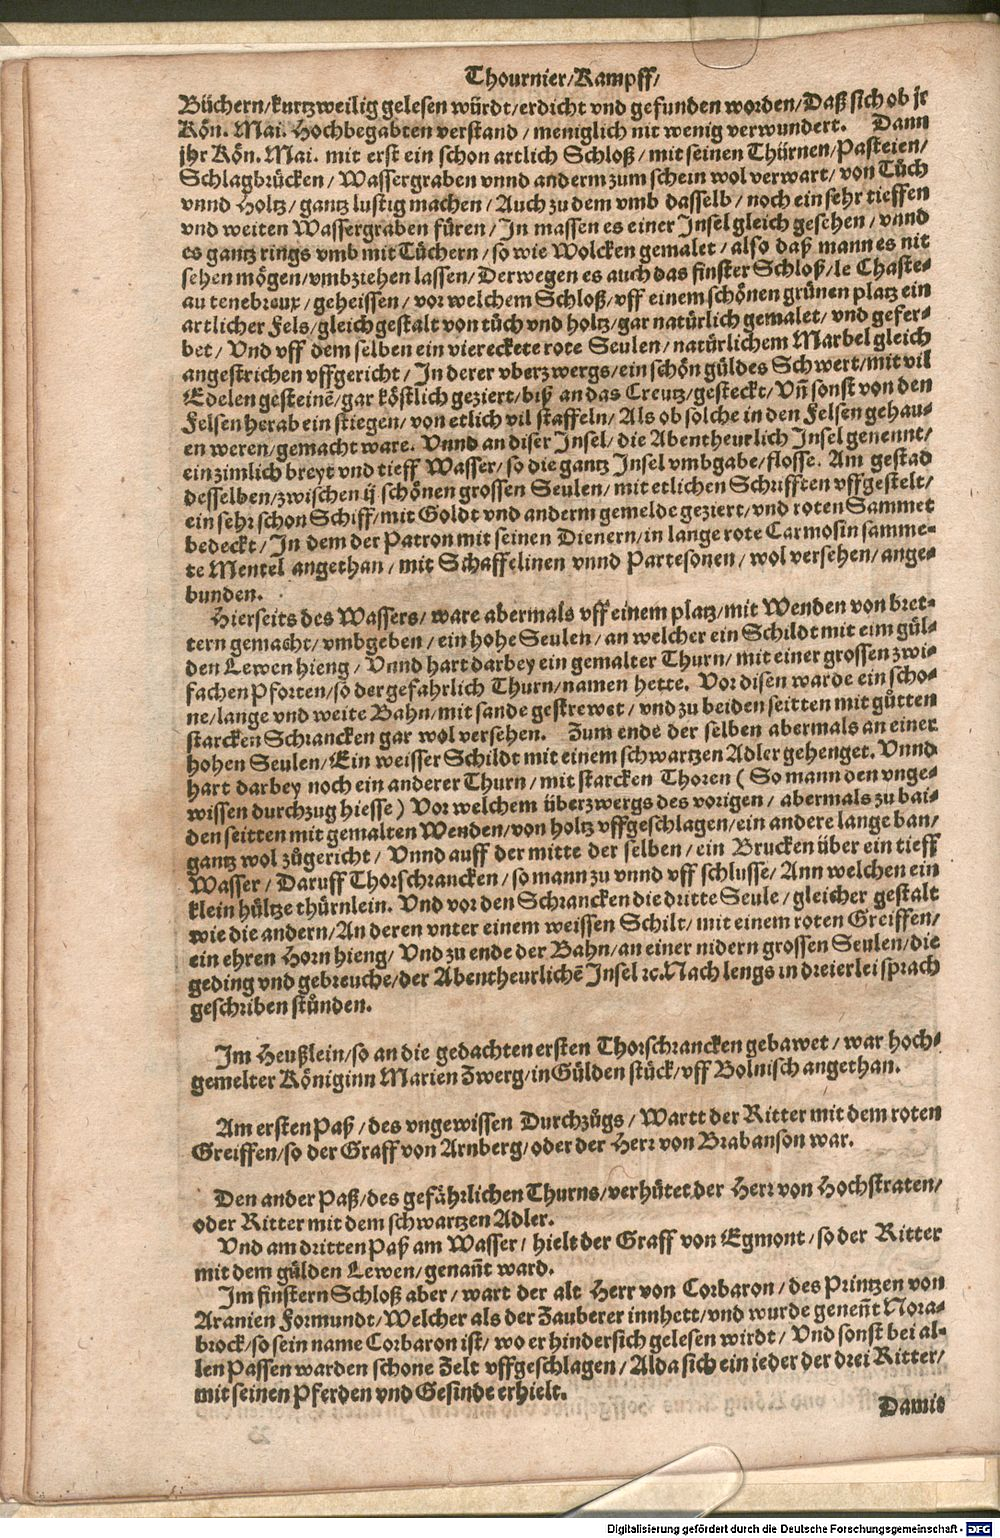 Thournier/Kampff/
Büchern/kurtzweilig gelesen würdt/erdicht vnd gefunden worden/Daß sich ob jr
Kön. Mai. Hochbegabten verstand / meniglich nit wenig verwundert. Dann
jhr Kön. Mai. mit erst ein schon artlich Schloß / mit seinen Thürnen/Pasteien/
Schlagbrücken / Wassergraben vnnd anderm zum schein wol verwart/ von Tüch
vnnd Holtz / gantz lustig machen / Auch zu dem vmb dasselb / noch ein sehr tieffen
vnd weiten Wassergraben füren / In massen es einer Insel gleich gesehen / vnnd
es gantz rings vmb mit Tüchern / so wie Wolcken gemalet / also daß mann es nit
sehen mögen/vmbziehen lassen / Derwegen es auch das finster Schloß/le Chaste-
au tenebreux / geheissen / vor welchem Schloß/vff einem schönen grünen platz ein
artlicher Fels/gleich gestalt von tüch vnd holtz/gar natürlich gemalet/ vnd gefer-
bet / Vnd vff dem selben ein viereckete rote Seulen / natürlichem Marbel gleich
angestrichen vffgericht / In derer vberzwergs/ein schön güldes Schwert/mit vil
Edelen gesteinē/gar köstlich geziert/biß an das Creutz/gesteckt/Vñ sonst von den
Felsen herab ein stiegen/ von etlich vil staffeln/ Als ob solche in den Felsen gehau-
en weren/gemacht ware. Vnnd an diser Insel/ die Abentheurlich Insel genennt/
ein zimlich breyt vnd tieff Wasser/ so die gantz Insel vmbgabe/flosse. Am gestad
desselben/zwischen ij schönen grossen Seulen/ mit etlichen Schrifften vffgestelt/
ein sehr schon Schiff/mit Goldt vnd anderm gemelde geziert/vnd roten Sammet
bedeckt/ In dem der Patron mit seinen Dienern/in lange rote Carmosin samme-
te Mentel angethan / mit Schaffelinen vnnd Partesonen / wol versehen/ ange-
bunden.
Hierseits des Wassers/ ware abermals vff einem platz/mit Wenden von bret-
tern gemacht/ vmbgeben / ein hohe Seulen/ an welcher ein Schildt mit eim gül-
den Lewen hieng / Vnnd hart darbey ein gemalter Thurn/ mit einer grossen zwi-
fachen Pforten/so der gefahrlich Thurn/namen hette. Vor disen warde ein scho-
ne/lange vnd weite Bahn/mit sande gestrewet / vnd zu beiden seitten mit gütten
starcken Schrancken gar wol versehen. Zum ende der selben abermals an einer
hohen Seulen/Ein weisser Schildt mit einem schwartzen Adler gehenget. Vnnd
hart darbey noch ein anderer Thurn / mit starcken Thoren ( So mann den vnge-
wissen durchzug hiesse ) Vor welchem überzwergs des vorigen / abermals zu bai-
den seitten mit gemalten Wenden/von holtz vffgeschlagen/ein andere lange ban/
gantz wol zügericht / Vnnd auff der mitte der selben / ein Brucken über ein tieff
Wasser / Daruff Thorschrancken / so mann zu vnnd vff schlusse/ Ann welchen ein
klein hültze thürnlein. Vnd vor den Schrancken die dritte Seule / gleicher gestalt
wie die andern/An deren vnter einem weissen Schilt/ mit einem roten Greiffen/
ein ehren Horn hieng/ Vnd zu ende der Bahn/an einer nidern grossen Seulen/die
geding vnd gebreuche/der Abentheurlichē Insel ꝛc. Nach lengs in dreierlei sprach
geschriben stünden.
Im Heußlein/so an die gedachten ersten Thorschrancken gebawet / war hoch-
gemelter Königinn Marien Zwerg/in Gülden stück/vff Bolnisch angethan.
Am ersten Paß / des vngewissen Durchzügs / Wartt der Ritter mit dem roten
Greiffen/so der Graff von Arnberg/oder der Herr von Brabanson war.
Den ander Paß/des gefährlichen Thurns/verhütet der Herr von Hochstraten/
oder Ritter mit dem schwartzen Adler.
Vnd am dritten Paß am Wasser/ hielt der Graff von Egmont / so der Ritter
mit dem gülden Lewen/genañt ward.
Im finstern Schloß aber/ wart der alt Herr von Corbaron / des Printzen von
Aranien Formundt/Welcher als der Zauberer innhett/vnd wurde geneñt Nora-
brock/so sein name Corbaron ist/ wo er hindersich gelesen wirdt / Vnd sonst bei al-
len Passen warden schone Zelt vffgeschlagen / Alda sich ein ieder der drei Ritter/
mit seinen Pferden vnd Gesinde erhielt.
Damit
Digitalisierung gefördert durch die Deutsche Forschungsgemeinschaft - DFG